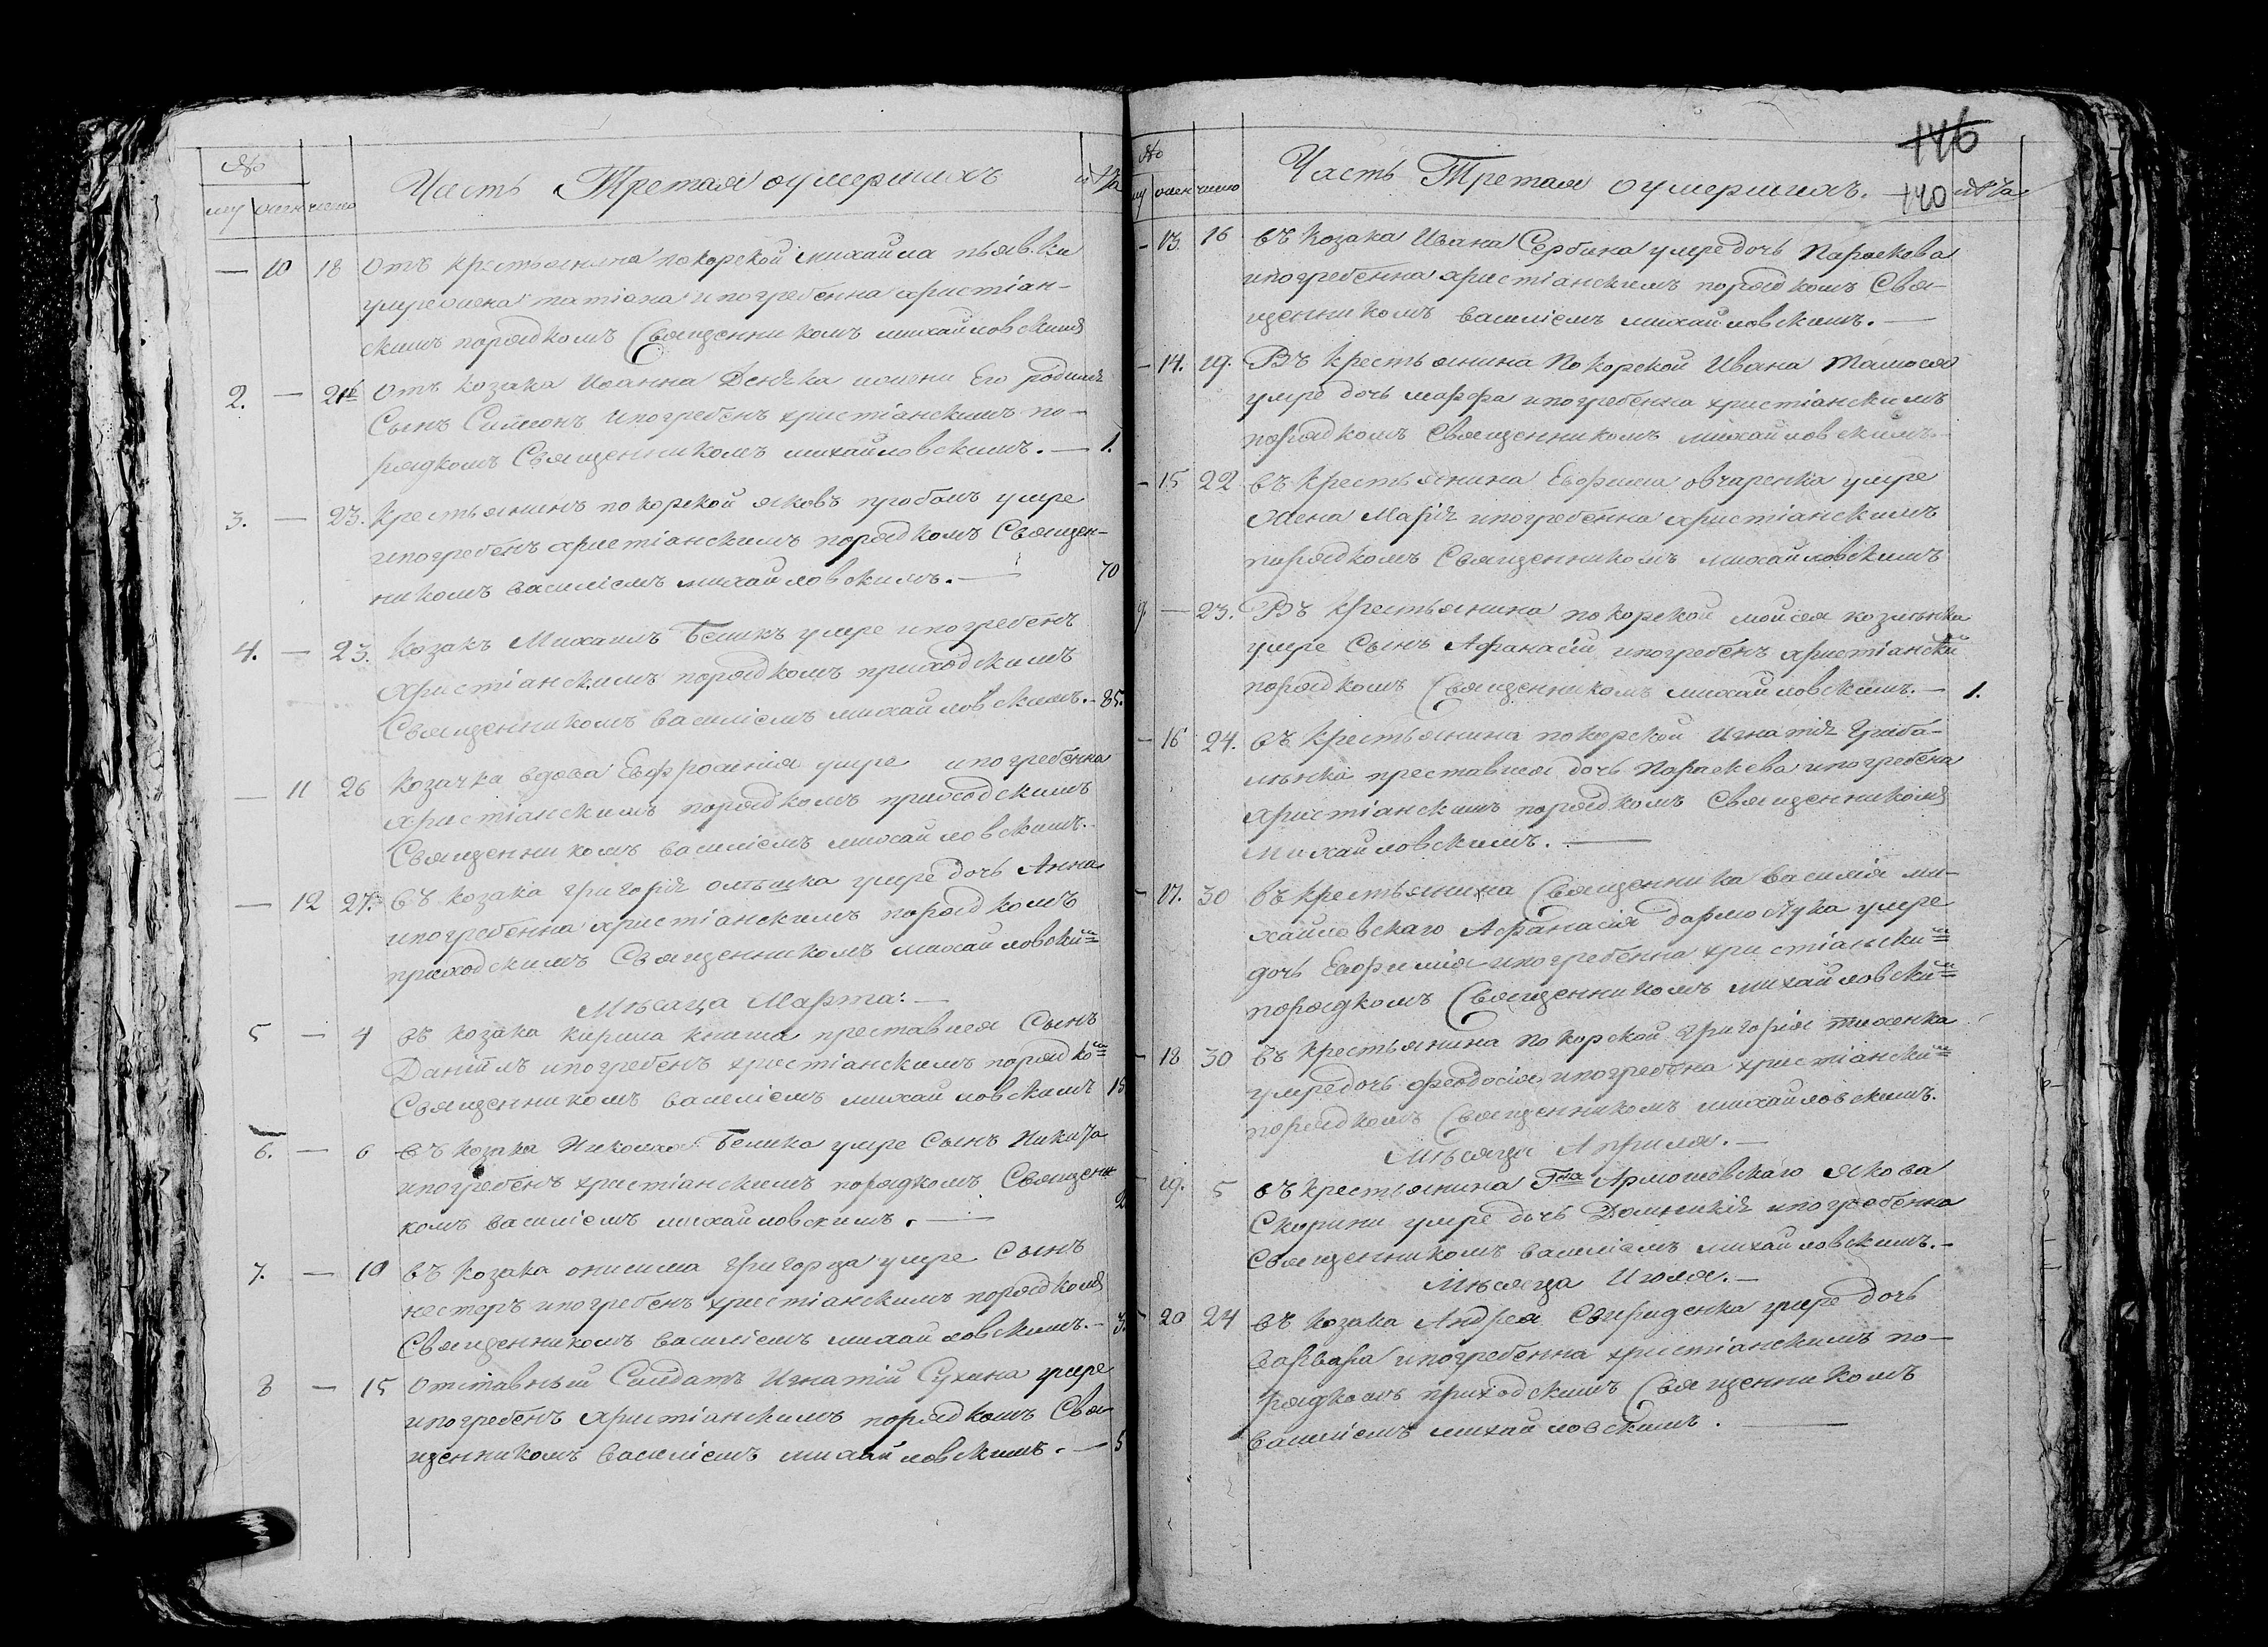 №
Часть Третая оумершихъ
му жен число
— 10 18 Отъ крестьянина покорской михайла пьявки
умре жена татіана и погребенна христіан-
скимъ порядкомъ Священникомъ михайловскимъ
2. — 21 Отъ козака Иоанна и жени Его родился
Сынъ Симеонъ и погребенъ христіанскимъ по-
рядкомъ Священникомъ михайловскимъ. — 1.
3. — 23. крестьянинъ покорской яковъ умре
и погребенъ христіанскимъ порядкомъ Священ-
никомъ василіемъ михайловскимъ. — 70
4. — 23. Козакъ Михаилъ Беликъ умре и погребенъ
христіанскимъ порядкомъ приходскимъ
Священникомъ василіемъ михайловскимъ. — 85.
— 11 26 Козачка вдова Евфросинія умре и погребенна
христіанскимъ порядкомъ приходскимъ
Священникомъ василіемъ михайловскимъ.
— 12 27. въ козака григорія умре дочь Анна
и погребенна христіанскимъ порядкомъ
приходскимъ Священникомъ михайловски=
Мѣсяца Марта: —
5 — 4 въ козака кирила книша преставися Сынъ
Даніилъ и погребенъ христіанскимъ порядко=
Священникомъ василіемъ михайловскимъ 15
6. — 6 въ козака Николая Белика умре Сынъ Никита
и погребенъ христіанскимъ порядкомъ Священи
комъ василіемъ михайловскимъ. — 2
7. — 10 въ козака онисима григорца умре Сынъ
нестеръ и погребенъ христіанскимъ порядкомъ
Священникомъ василіемъ михайловскимъ. — 3.
8 — 15 Отставный Салдатъ Игнатій Сухина умре
и погребенъ христіанскимъ порядкомъ Свя-
щенникомъ василіемъ михайловскимъ. — 5
146
№
Часть Третая оумершихъ. — 140
жен число лѣта
— 13. 16 въ козака Ивана Сербина умре дочь Параскева
и погребенна христіанскимъ порядкомъ Свя-
щенникомъ василіемъ михайловскимъ. —
— 14. 19. Въ крестьянина Покорской Ивана
умре дочь марфа и погребенна христіанскимъ
порядкомъ Священникомъ михайловскимъ.
— 15 22 въ крестьянина Евфима овчаренка умре
жена Марія и погребенна христіанскимъ
порядкомъ Священникомъ михайловскимъ
9 — 23. Въ крестьянина покорской мойсея козменка
умре Сынъ Афанасій и погребенъ христіански
порядкомъ Священникомъ михайловскимъ. — 1.
— 16 24. въ крестьянина покорской Игнатія
преставися дочь Параскева и погребена
христіанскимъ порядкомъ Священникомъ
михайловскимъ. —
— 17. 30 въ крестьянина Священника василія ми-
хайловскаго Афанасія умре
дочь Евфимія и погребенна христіански=
порядкомъ Священникомъ михайловски=
— 18 30 въ крестьянина покорской григорія тихенка
умре дочь феодосія и погребена христіански=
порядкомъ Священникомъ михайловскимъ.
Мѣсяца Априля. —
— 19. 5 въ крестьянина Гна Армошевскаго якова
Скорини умре дочь Домникія и погребенна
Священникомъ василіемъ михайловскимъ. —
Мѣсяца Июля. —
— 20 24 въ козака Андрея Свириденка умре дочь
варвара и погребенна христіанскимъ по-
рядкомъ приходскимъ Священникомъ
василіемъ михайловскимъ. —